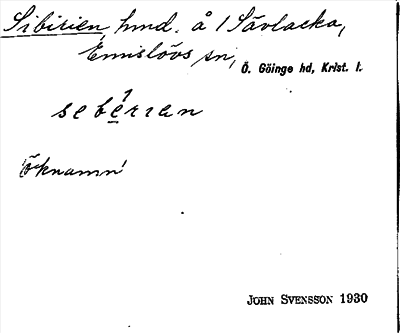 Sibirien, hmd. å 1 Sävlacka,
Emislövs sn,
Ö. Göinge hd, Krist. l.
sebérian
öknamn
JOHN SVENSSON 1930